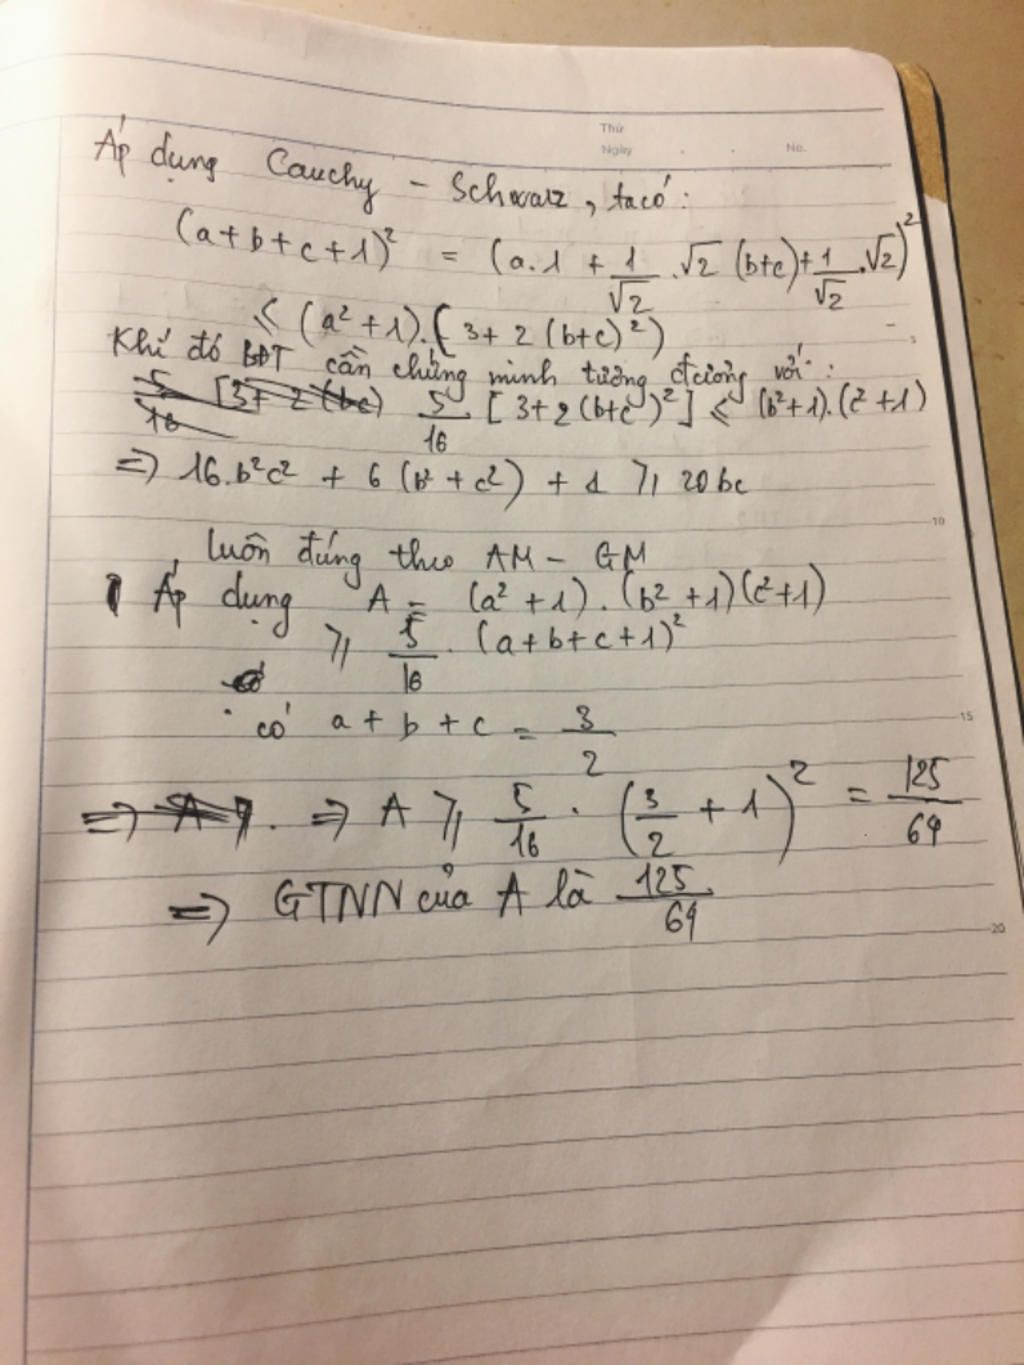 Thứ
Ngày . . No.
Áp dụng Cauchy - Schwarz, ta có:
(a+b+c+1)² = (a.1 + 1/√2 . √2 (b+c) + 1/√2 . √2)²
≤ (a²+1).(3+2(b+c)²)
Khi đó BĐT cần chứng minh tương đương với:
5/16 [3+2(bc) 5/16 [3+2(b+c)²] ≤ (b²+1).(c²+1)
=> 16.b²c² + 6(b²+c²) + 1 ≥ 20bc
luôn đúng theo AM - GM
Áp dụng A = (a²+1).(b²+1)(c²+1)
≥ 5/16 . (a+b+c+1)²
có a+b+c = 3/2
=> A ≥ . => A ≥ 5/16 . (3/2 + 1)² = 125/64
=> GTNN của A là 125/64
5
10
15
20